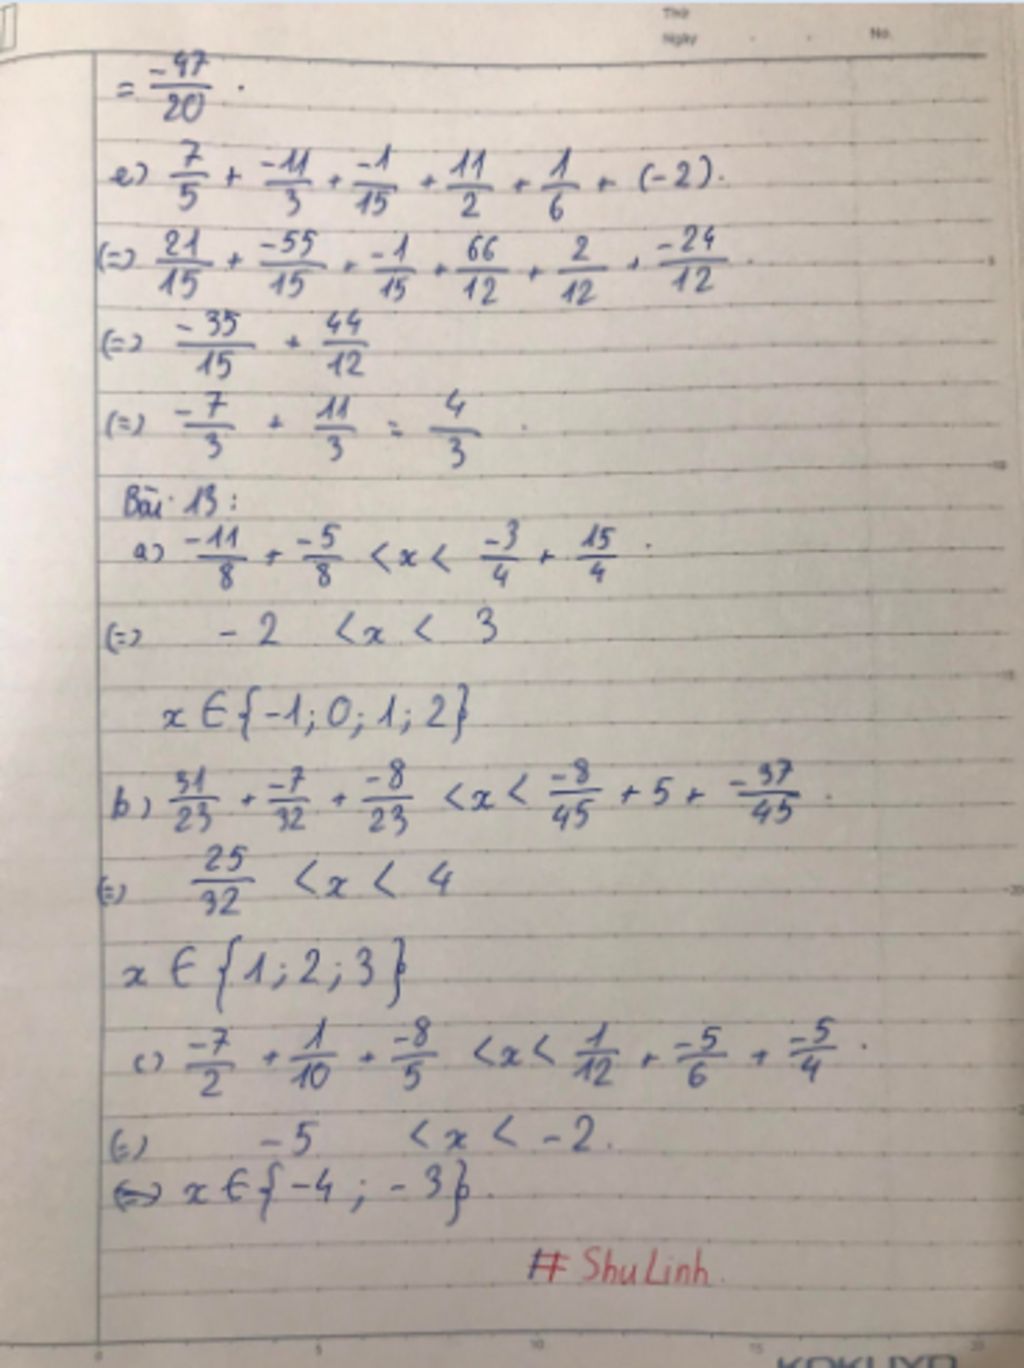 Thứ
Ngày . . No.
= -47/20 .
e) 7/5 + -11/3 + -1/15 + 11/2 + 1/6 + (-2).
(=) 21/15 + -55/15 + -1/15 + 66/12 + 2/12 + -24/12 .
(=) -35/15 + 44/12
(=) -7/3 + 11/3 = 4/3 .
Bài 13:
a) -11/8 + -5/8 < x < -3/4 + 15/4 .
(=) -2 < x < 3
x ∈ {-1; 0; 1; 2}
b) 31/23 + -7/32 + -8/23 < x < -8/45 + 5 + -37/45 .
(=) 25/32 < x < 4
x ∈ {1; 2; 3}
c) -7/2 + 1/10 + -8/5 < x < 1/12 + -5/6 + -5/4 .
(=) -5 < x < -2.
(=) x ∈ {-4; -3}.
# ShuLinh
0 5 10 15 20
KOKUYO